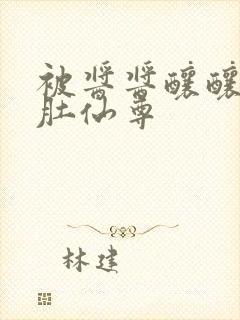 被酱酱酿酿
肚仙尊
林建